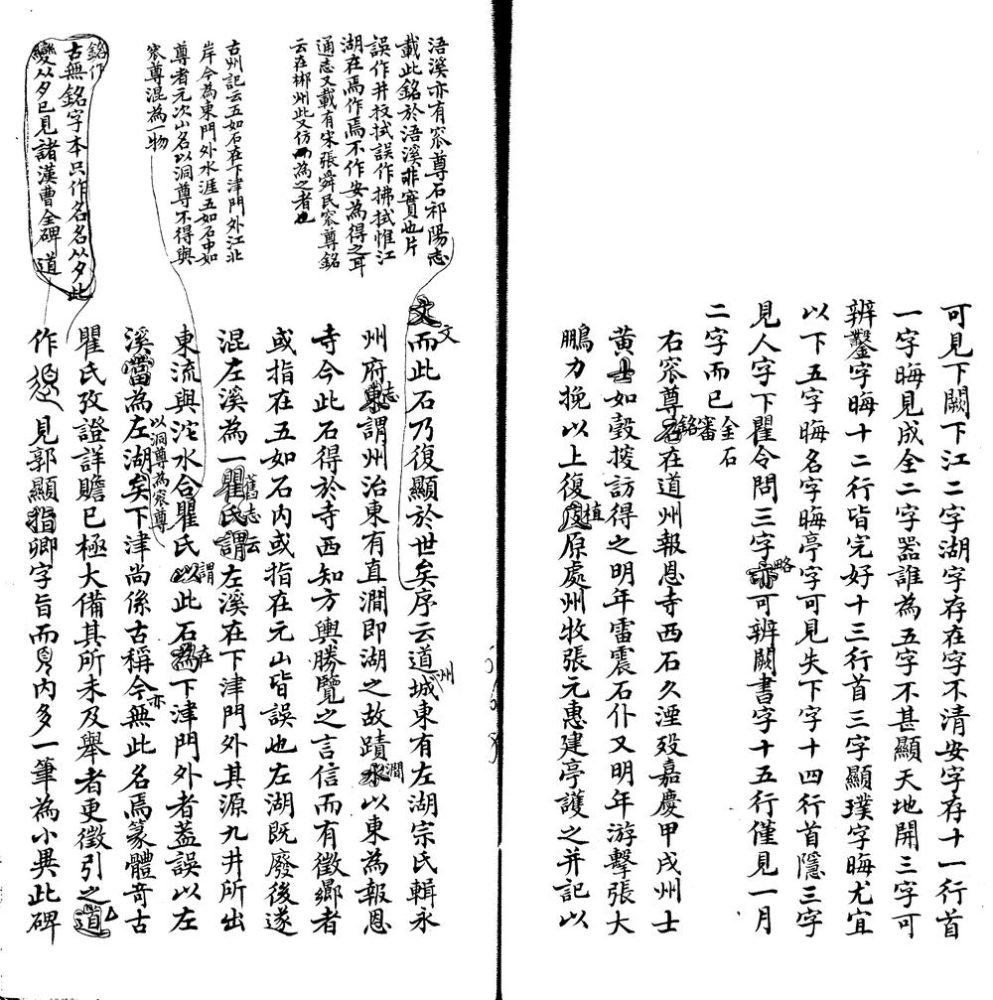 可見下闕下江二字湖字存在字不清安字存十一行首
一字晦見成全二字器誰為五字不甚顯天地開三字可
辨鑿字晦十二行皆完好十三行首三字顯璞字晦尤宜
以下五字晦名字晦亭字可見失下字十四行首隱三字
見人字下瞿令問三字略可辨闕書字十五行僅見一月
二字而已 金石審
右窊尊銘在道州報恩寺西石久湮歿嘉慶甲戌州士
黃如穀搜訪得之明年雷震石仆又明年游擊張大
鵬力挽以上復植原處州牧張元惠建亭護之并記以
文而此石乃復顯於世矣序云道州城東有左湖宗氏輯永
州府志謂州治東有直澗即湖之故蹟澗以東為報恩
寺今此石得於寺西知方輿勝覽之言信而有徵鄉者
或指在五如石內或指在元山皆誤也左湖既廢後遂
混左溪為一舊志云左溪在下津門外其源九井所出
東流與沱水合瞿氏謂此石在下津門外者蓋誤以左
溪為左湖以洞尊為窊尊矣下津尚係古稱今亦無此名焉篆體奇古
瞿氏攷證詳贍已極大備其所未及舉者更徵引之道
作見郭顯卿字旨而內多一筆為小異此碑
浯溪亦有窊尊石祁陽志
載此銘於浯溪非實也片
誤作井抆拭誤作拂拭惟江
湖在焉作焉不作安為得之耳
通志又載有宋張舜民窊尊銘
云在郴州此又仿而為之者也
古州記云五如石在下津門外江北
岸今為東門外水涯五如石中如
尊者元次山名以洞尊不得與
窊尊混為一物
銘作
古無銘字本只作名名从夕此
變从夕已見諸漢曹全碑 道